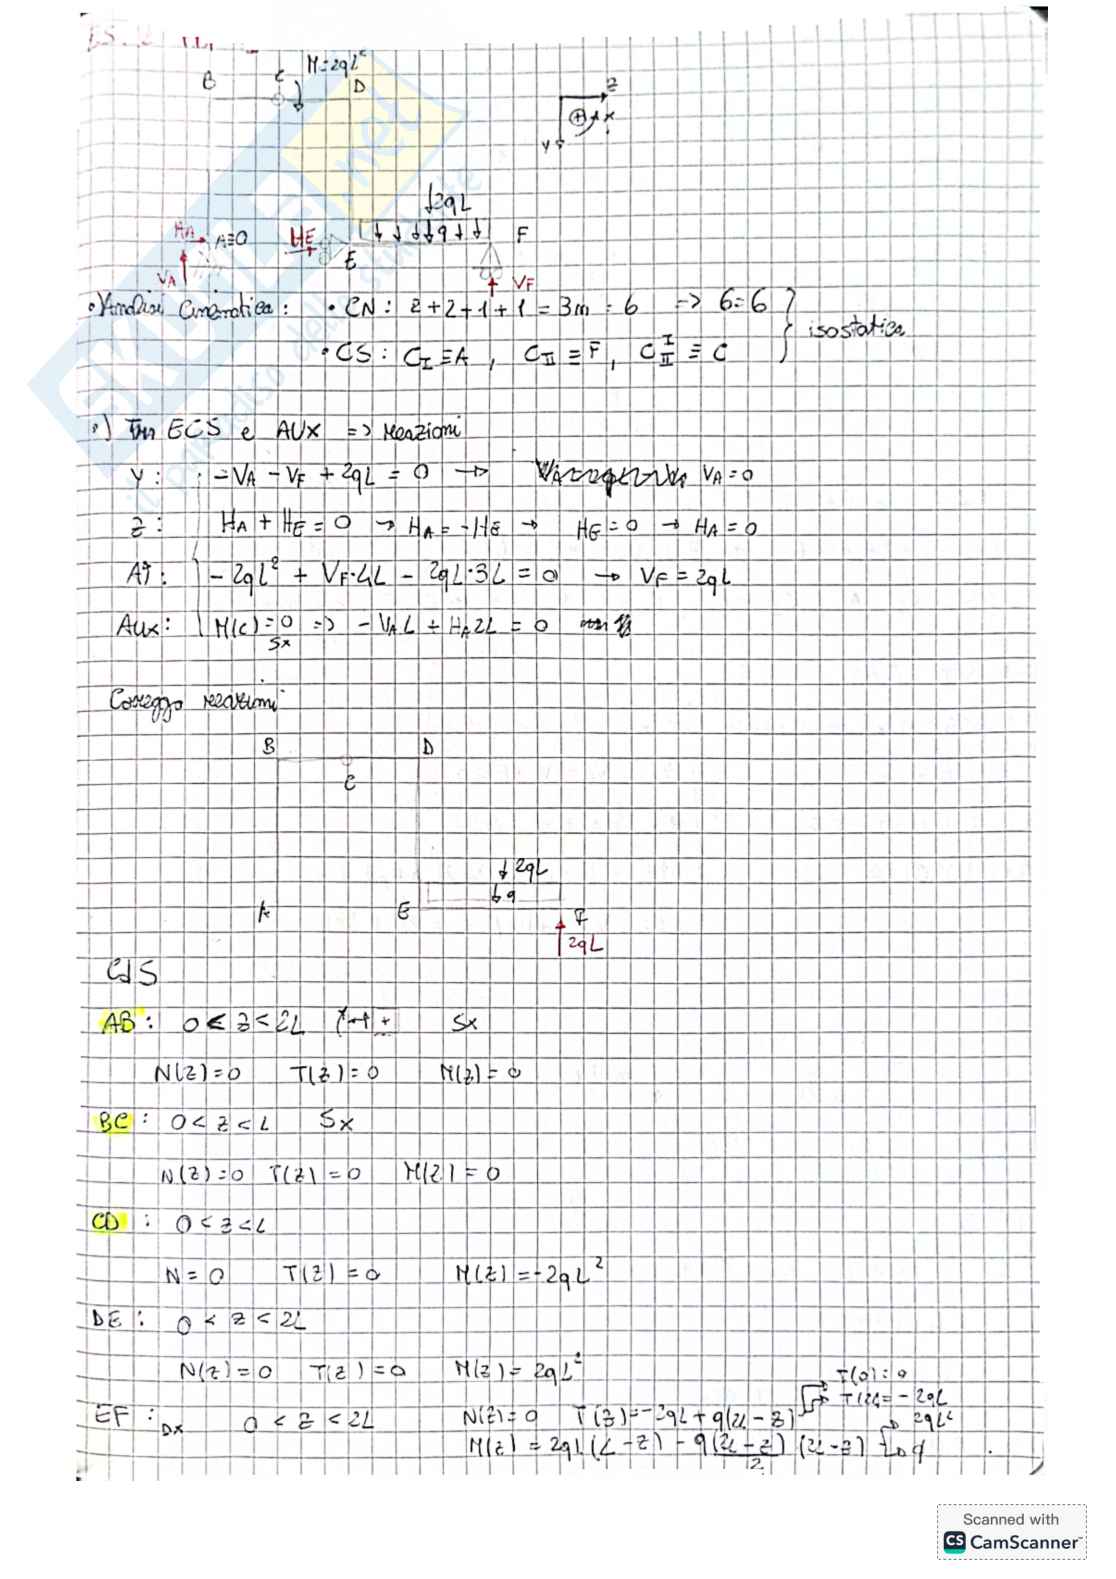 ES.
M=2qL²
B C D
z
+ x
y
↓2qL
HA A≡0 HE q F
E
VA VF
• Analisi Cinematica : • CN : 2+2+1+1 = 3m = 6 => 6=6
isostatica
• CS : CI ≡ A , CII ≡ F , C I II ≡ C
•) Tr ECS e AUX => reazioni
Y : -VA - VF + 2qL = 0 → VA = 0
z : HA + HE = 0 → HA = -HE → HE = 0 → HA = 0
A↑ : - 2qL² + VF·4L - 2qL·3L = 0 → VF = 2qL
Aux : M(C) = 0 => - VA L + HA 2L = 0
Sx
Correggo reazioni
B D
C
↓2qL
↓q
A E F
2qL
CdS
AB : 0 < z < 2L Sx
N(z) = 0 T(z) = 0 M(z) = 0
BC : 0 < z < L Sx
N(z) = 0 T(z) = 0 M(z) = 0
CD : 0 < z < L
N = 0 T(z) = 0 M(z) = -2qL²
DE : 0 < z < 2L
N(z) = 0 T(z) = 0 M(z) = 2qL²
T(0) = 0
T(2L) = -2qL
EF : Dx 0 < z < 2L N(z) = 0 T(z) = -2qL + q(2L - z) 2qL²
M(z) = 2qL (L - z) - q (2L - z)/2 (2L - z)
SKUOLA.net
il paradiso dello studente
Scanned with
CS CamScanner